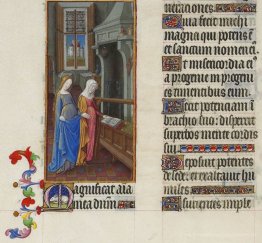 Magnificat aīa
mea dīum
nerationes
Quia fecit michi
magna qui potens ē
et sanctum nomen
Et misericordia ei
a progenie in progeni
es timentibus eum
Fecit potenciam ī
brachio suo: dispersit
superbos mente cordis
sui
Deposuit potentes
de sede: et exaltauit hu
miles
Esurientes imple